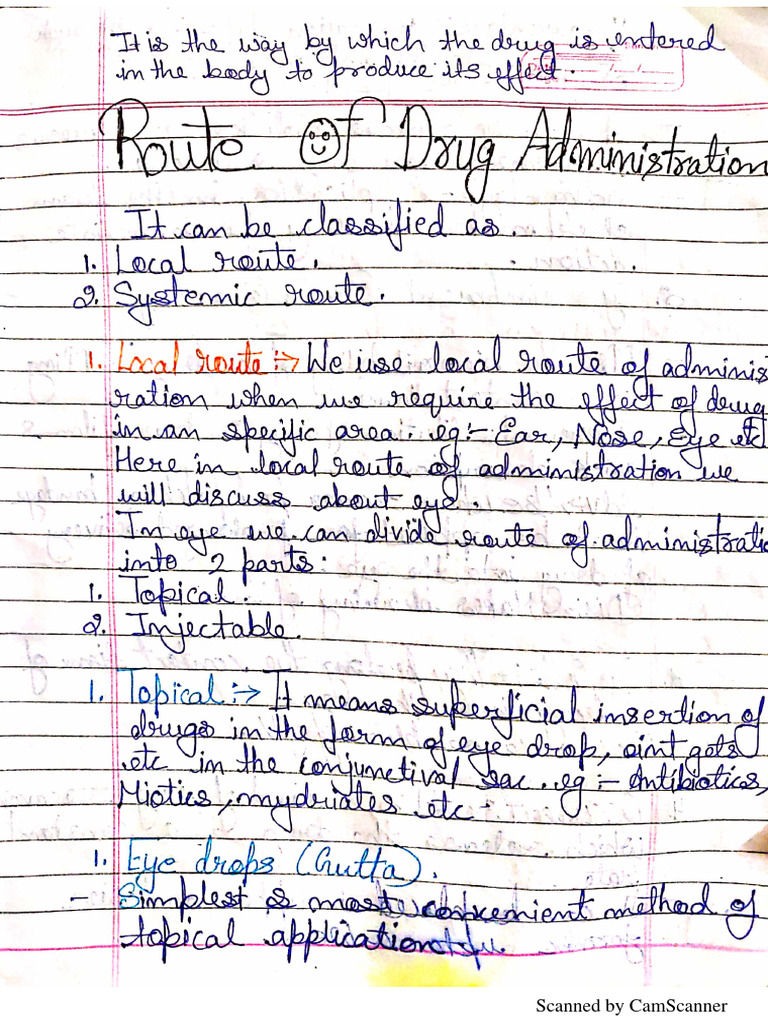 It is the way by which the drug is entered
in the body to produce its effect.
Route Of Drug Administration
It can be classified as.
1. Local route.
2. Systemic route.
1. Local route :-> We use local route of adminis
ration when we require the effect of drug
in an specific area. eg:- Ear, Nose, Eye etc
Here in local route of administration we
will discuss about eye.
In eye we can divide route of administratio
into 2 parts:
1. Topical.
2. Injectable.
1. Topical :-> It means superficial insertion of
drugs in the form of eye drop, oint
etc in the conjunctival sac. eg :- Antibiotics,
Miotics, mydriates etc.
1. Eye drops (Gutta).
- Simplest & most convenient method of
topical application
Scanned by CamScanner